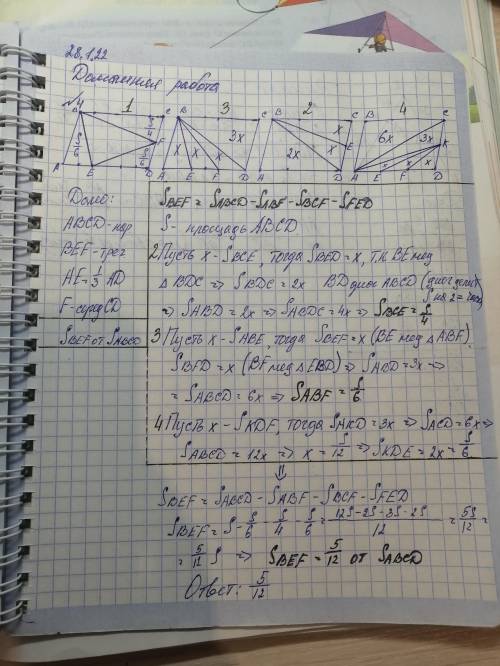 28.1.22
Домашняя работа
№4 1 3 2 4
B C B C B C B C
A E D F
A E F D
A D E
A E F D K
x x x 3x
2x x x
6x 3x x x
Дано:
ABCD - пар
BEF - треуг
AE = 1/3 AD
F - серед CD
S BEF от S ABCD
S BEF = S ABCD - S ABF - S BCF - S FED
S - площадь ABCD
2 Пусть x - S BCE, тогда S BED = x, т.к BE мед
Δ BDC ⇒ S BDC = 2x BD диаг ABCD (диаг делит
S на 2 = части)
⇒ S ABD = 2x ⇒ S ABDC = 4x ⇒ S BCE = S/4
3 Пусть x - S ABE, тогда S BEF = x (BE мед Δ ABF)
S BFD = x (BF мед Δ EBD) ⇒ S ABD = 3x ⇒
= S ABCD = 6x ⇒ S ABF = S/6
4 Пусть x - S KDF, тогда S AKD = 3x ⇒ S ACD = 6x ⇒
S ABCD = 12x ⇒ x = S/12 ⇒ S KDE = 2x = S/6
⇓
S BEF = S ABCD - S ABF - S BCF - S FED
S BEF = S - S/6 - S/4 - S/6 = (12S - 2S - 3S - 2S)/12 = 5S/12 =
= 5/12 S ⇒ S BEF = 5/12 от S ABCD
Ответ: 5/12